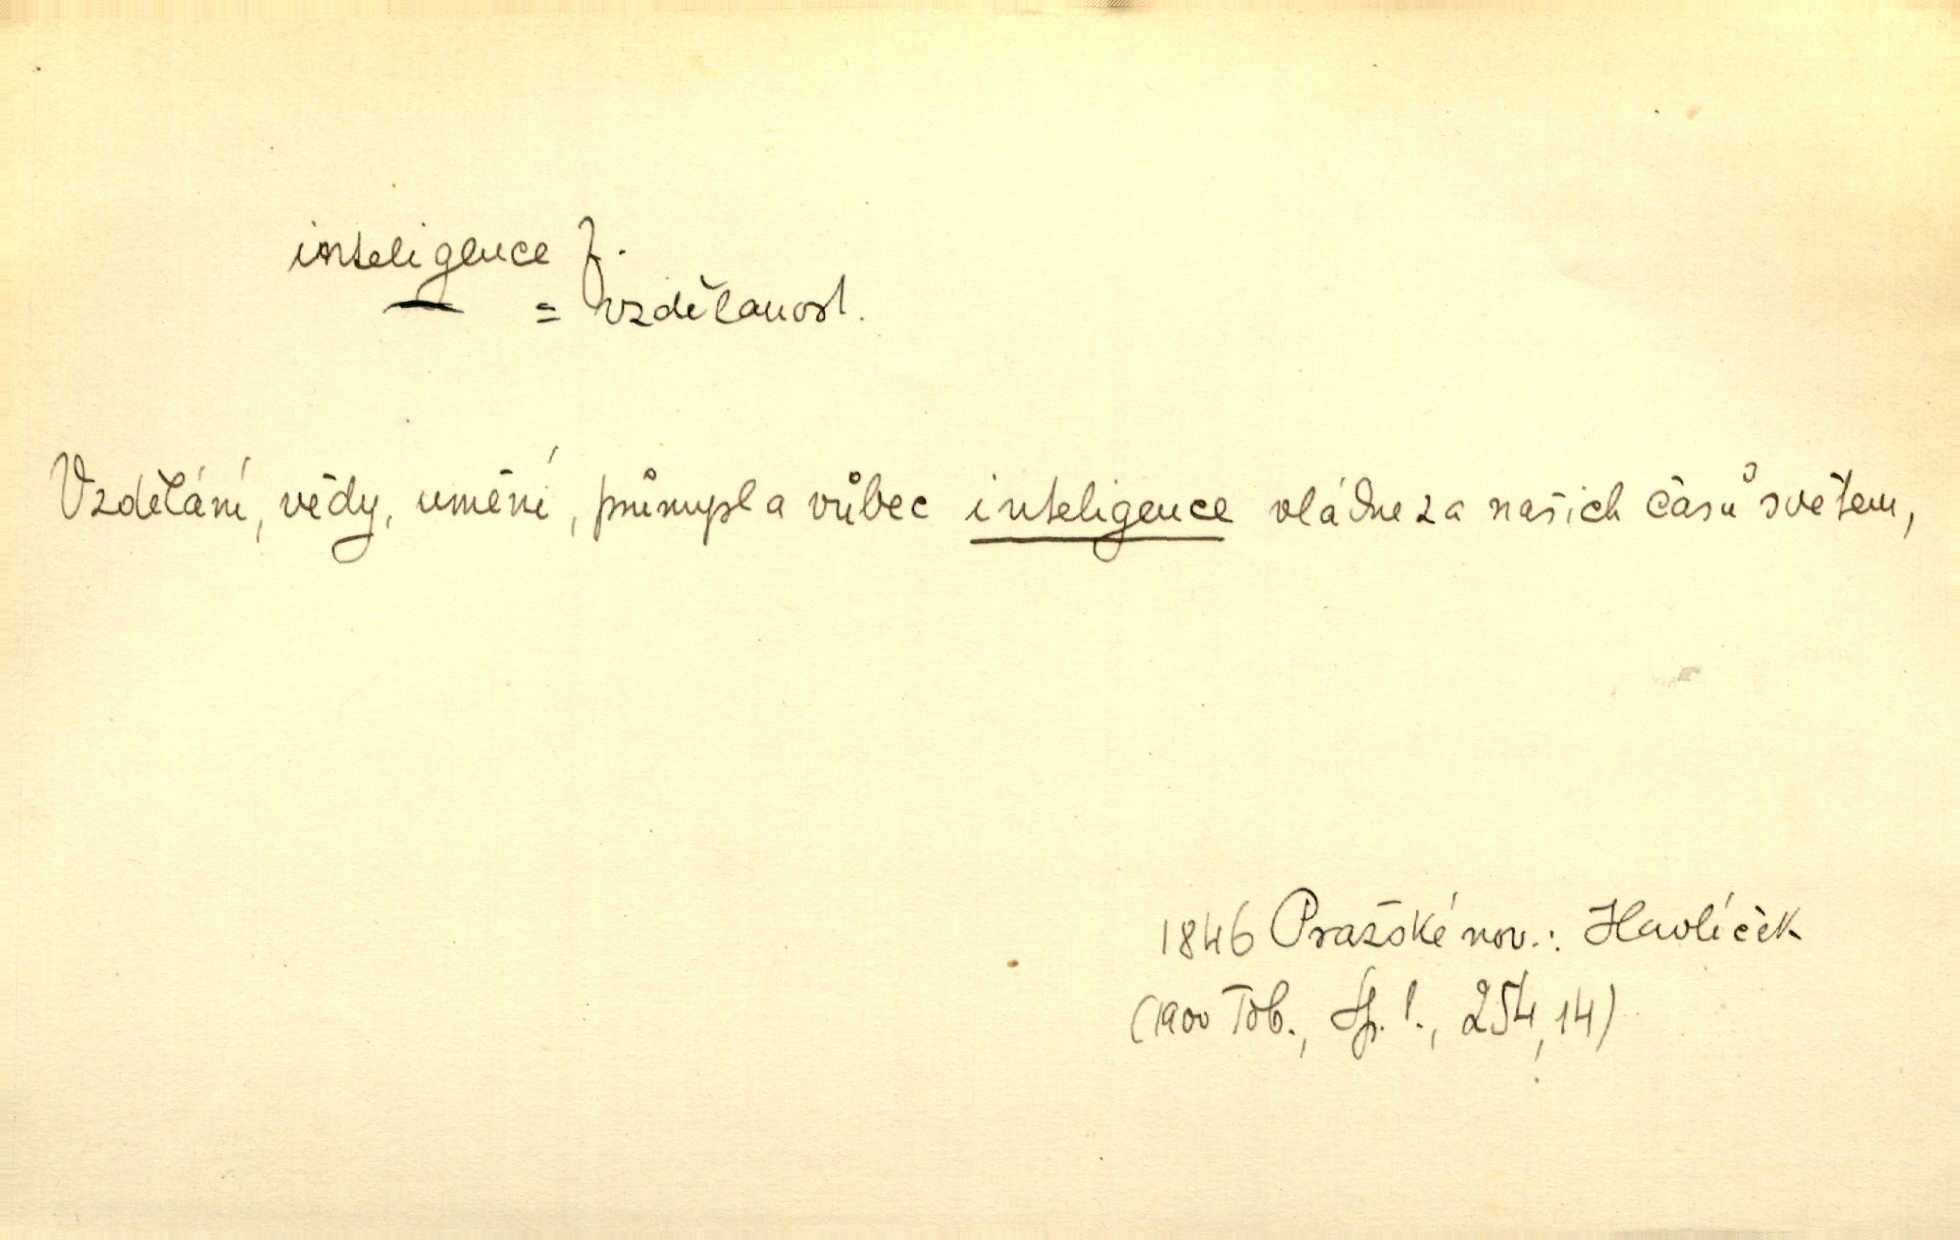 inteligence f.
= vzdělanost.
Vzdělání, vědy, umění, průmysl a vůbec inteligence vládne za našich časů světem,
1846 Pražské nov.: Havlíček
(1900 Tob., Sp. 1., 254, 14)